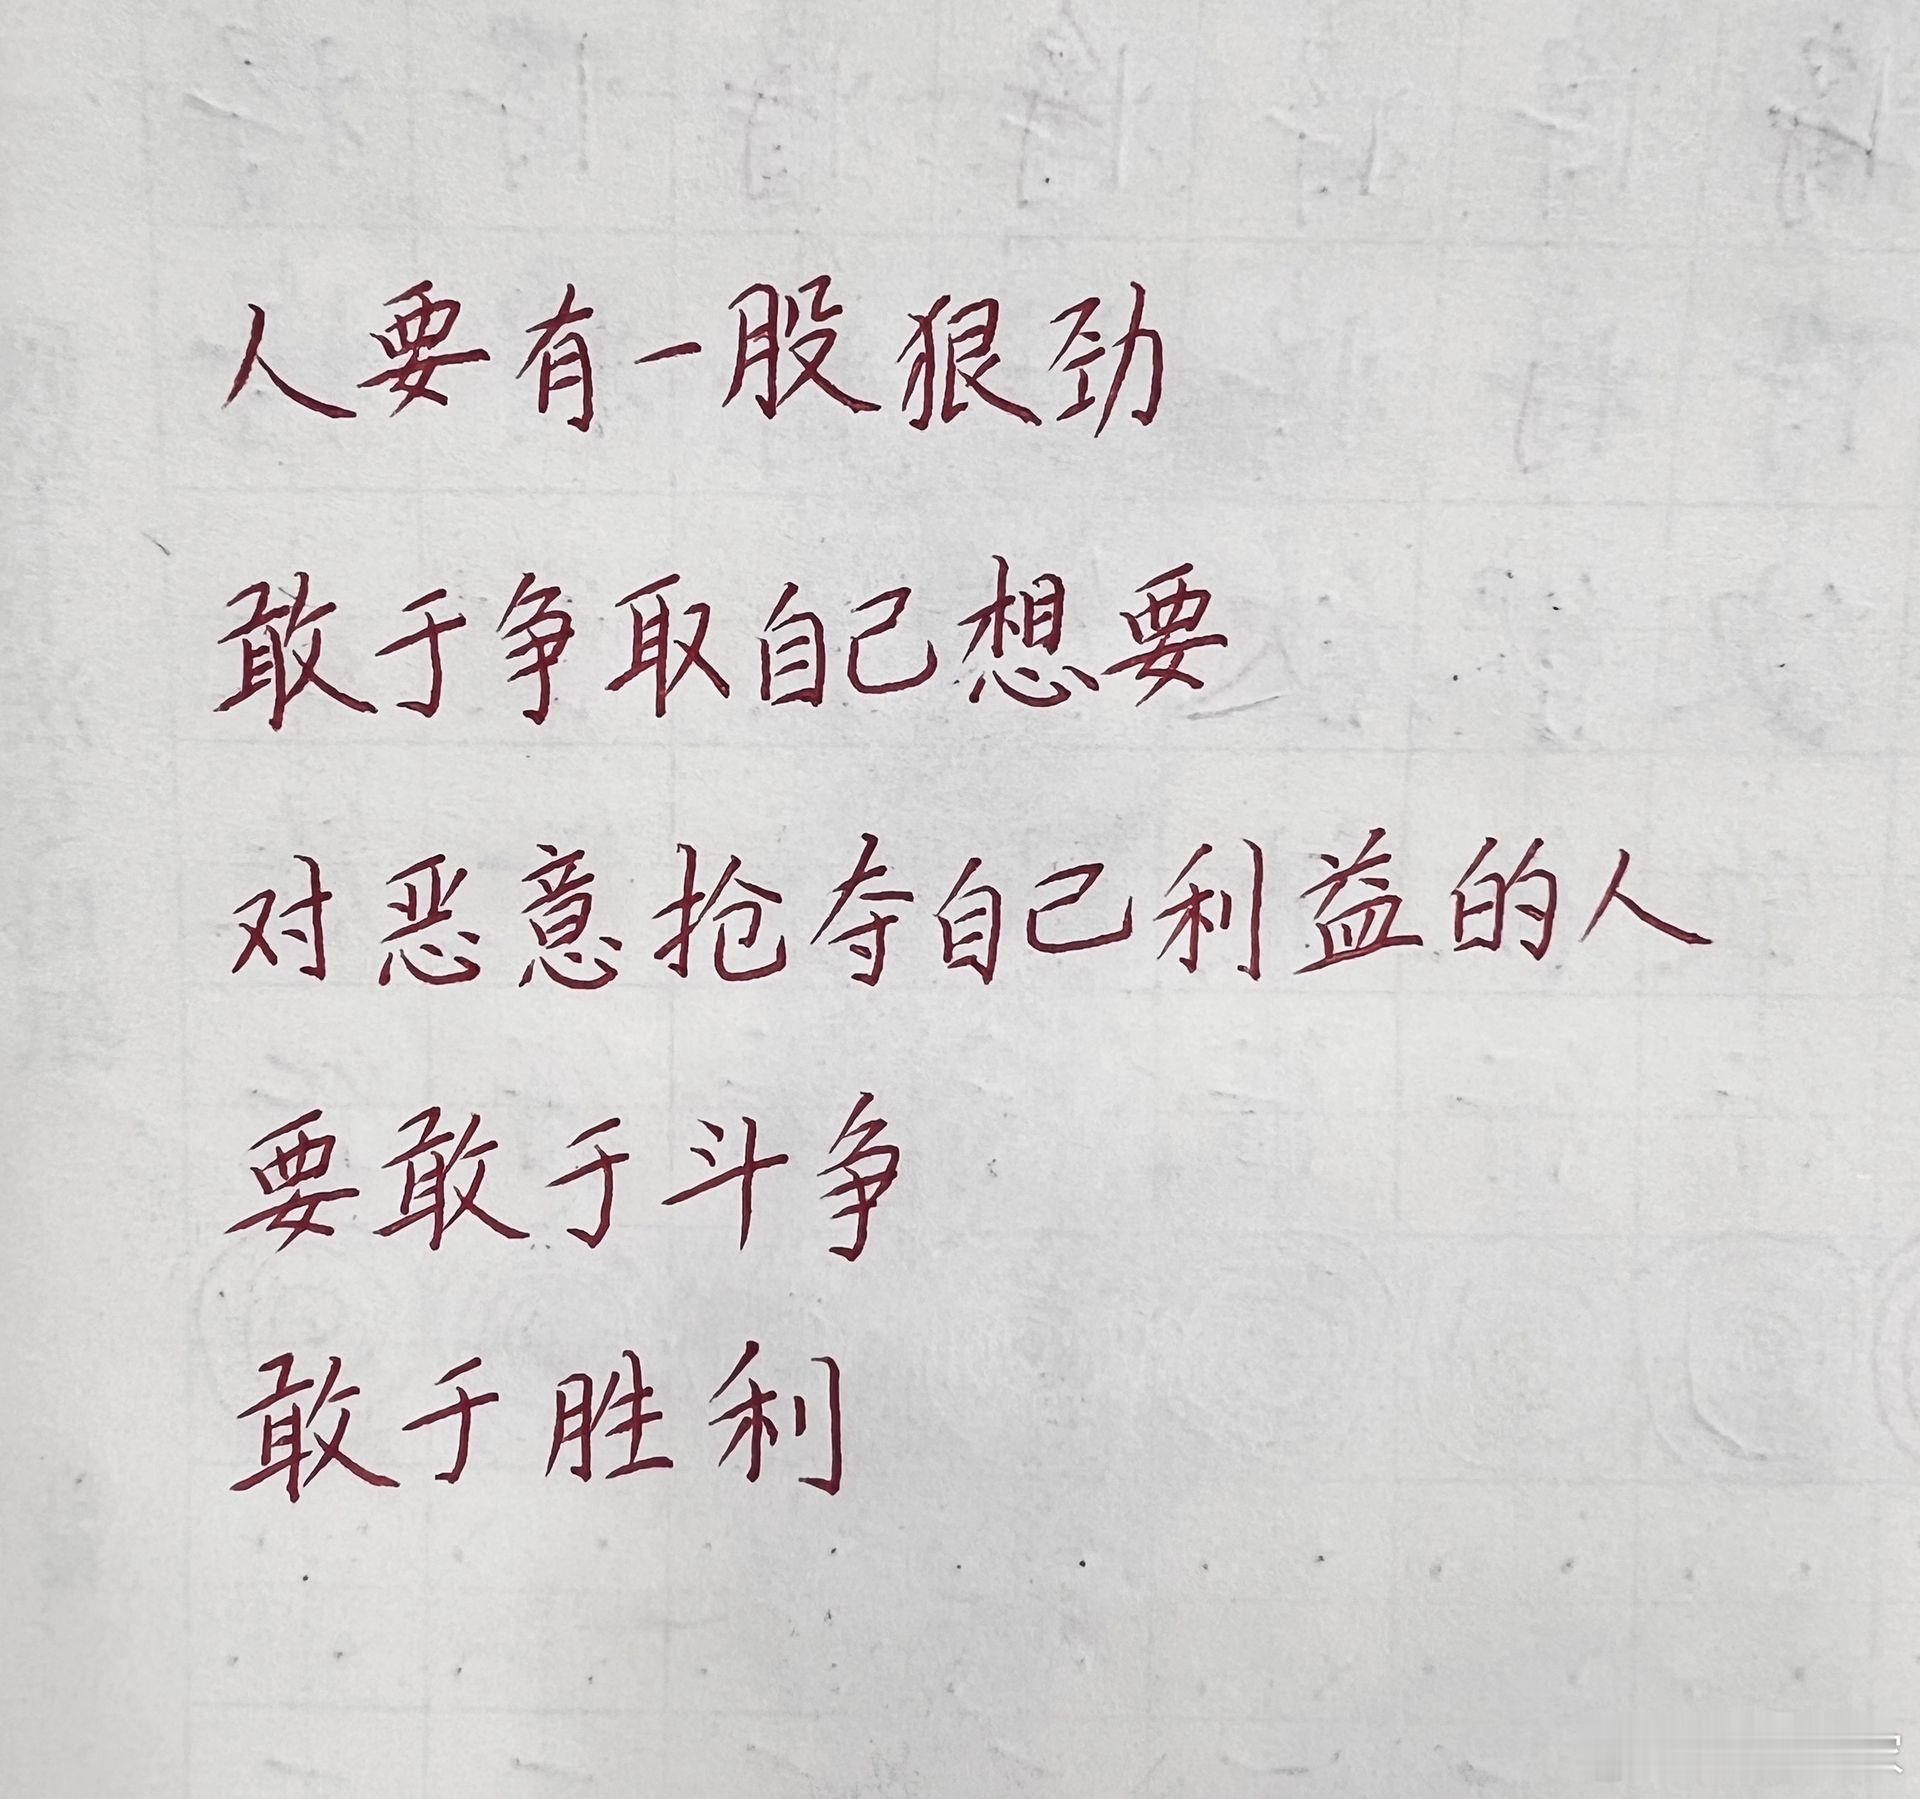 人要有一股狠劲
敢于争取自己想要
对恶意抢夺自己利益的人
要敢于斗争
敢于胜利